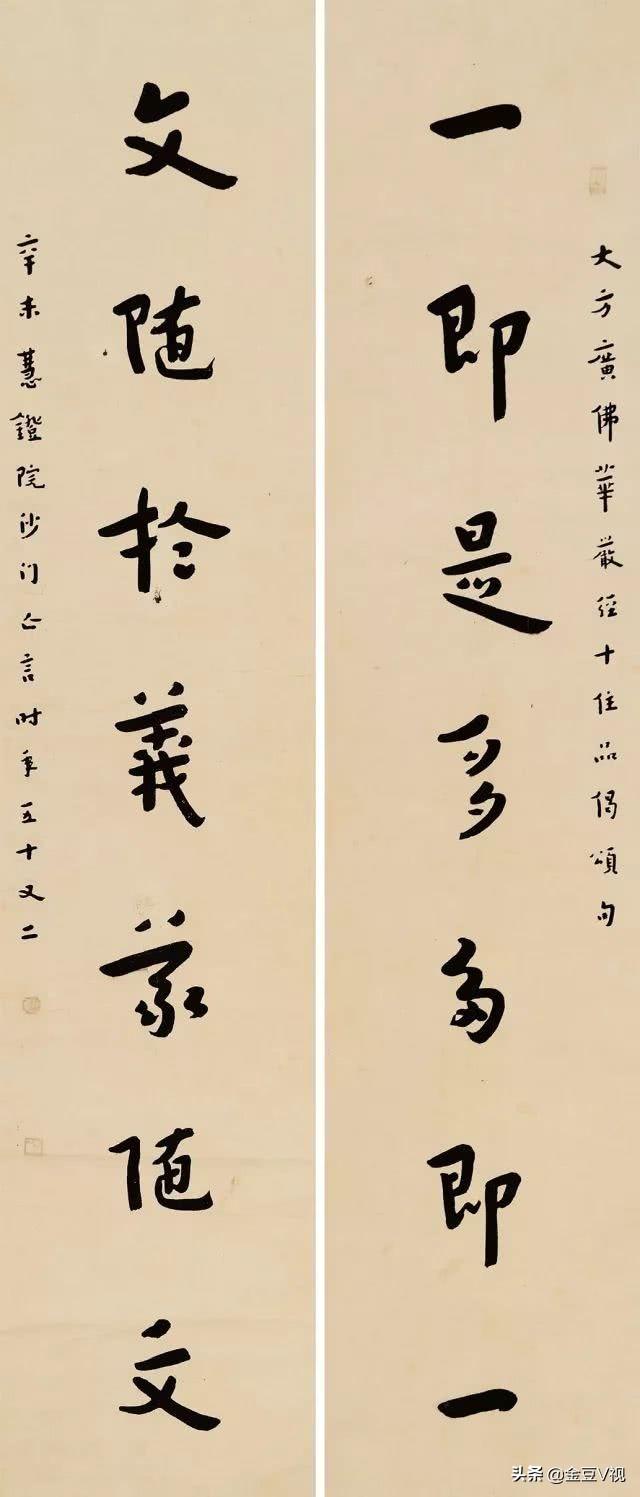 大方廣佛華嚴經十住品偈頌句
一即是多多即一
文随扵義義随文
辛未慧鐙院沙门亡言时年五十又二
头条 @金豆V视